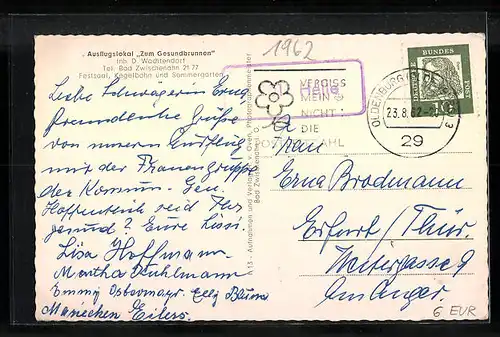 „Ausflugslokal "Zum Gesundbrunnen"
Inh. D. Wachtendorf
Tel. Bad Zwischenahn 21 77
Festsaal, Kegelbahn und Sommergarten
1962
Liebe Schwägerin Erna
freundliche Grüße
von unserem Ausflug
mit der Frauengruppe
des Kommun- Gen.
Hoffentlich seid Ihr
gesund? Eure Lissi.
Lisa Hoffmann
Martha Kuhlmann
Emmy Ostermayr. Elly Blume
Mariechen Eilers.
VERGISS
MEIN
NICHT
DIE
POSTLEITZAHL
OLDENBURG
23.8.62
29
DEUTSCHE
BUNDES
POST
10
Frau
Erna Brodmann
Erfurt / Thür.
Waitergasse 9
am Anger.
6 EUR